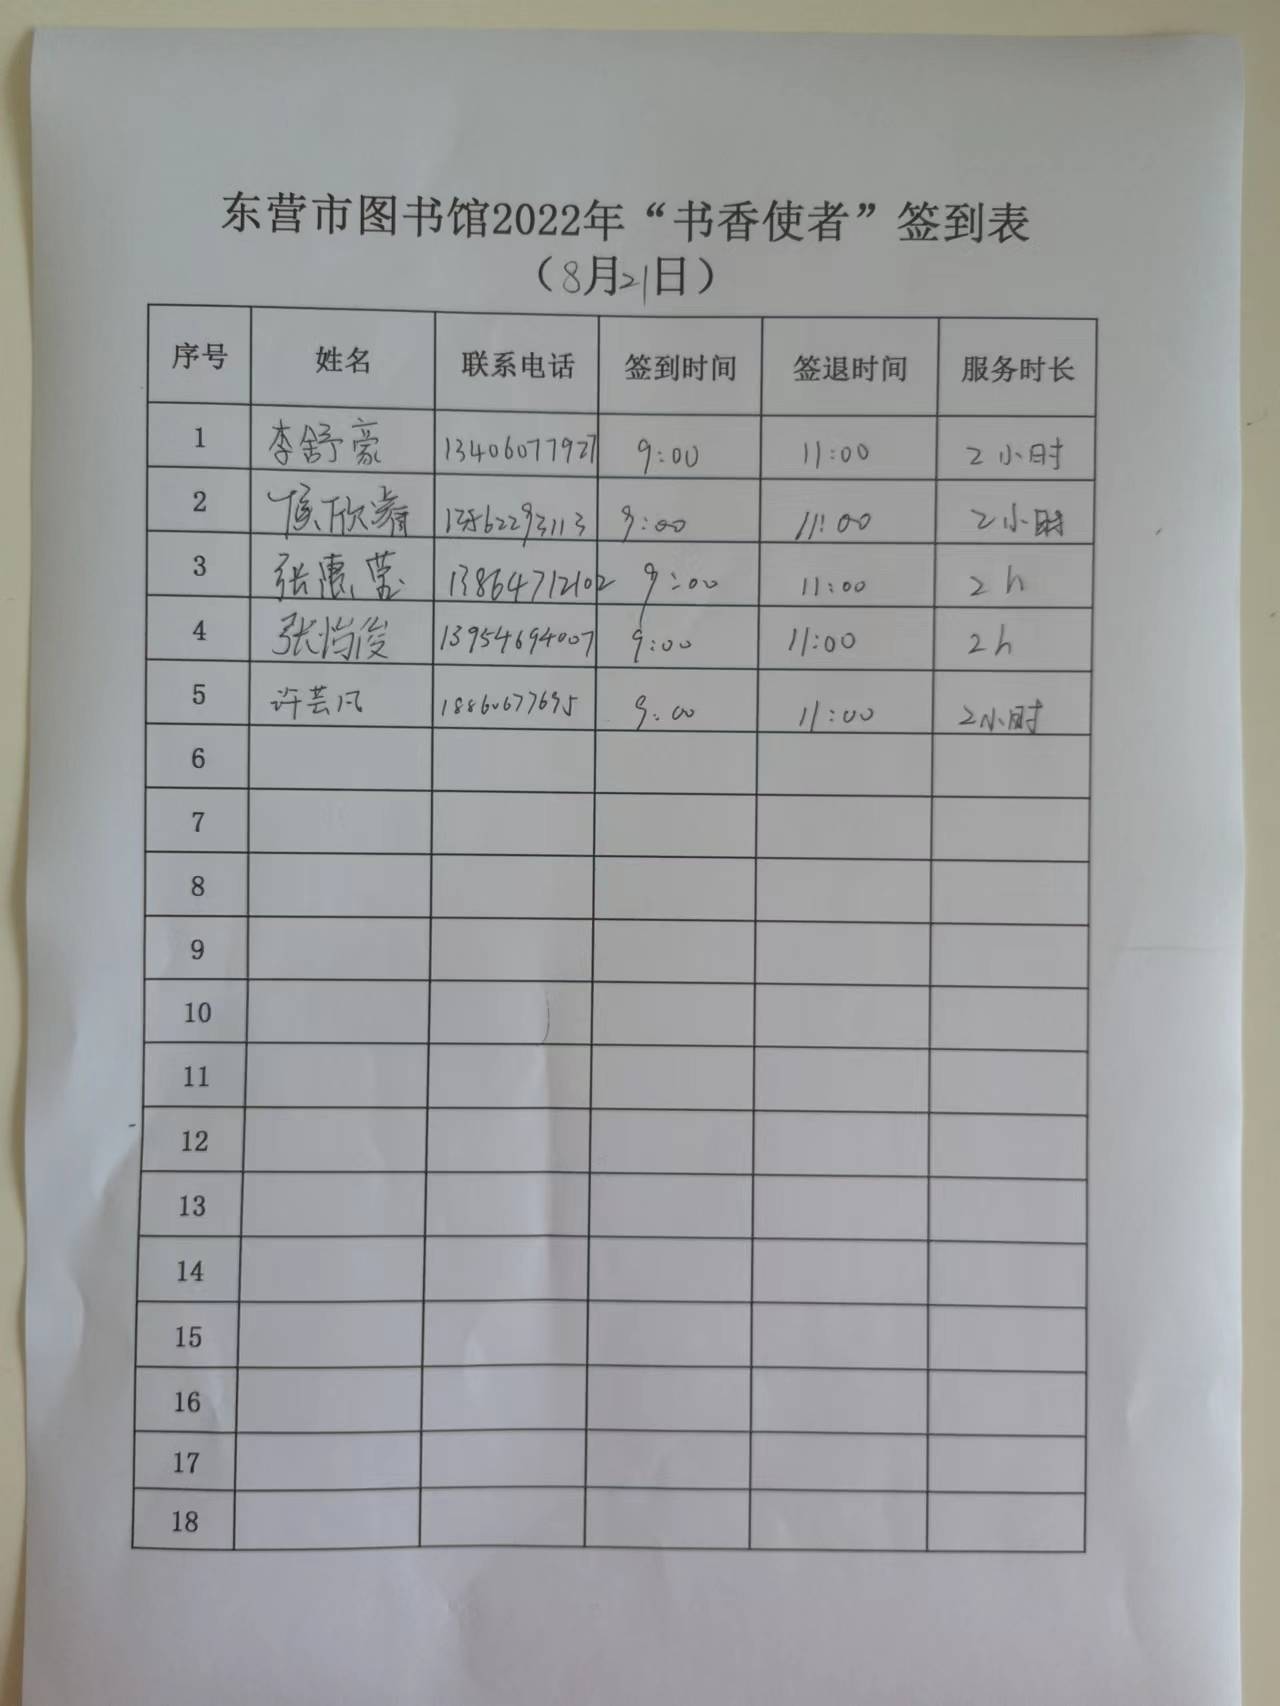 东营市图书馆2022年“书香使者”签到表
（8月21日）
序号 姓名 联系电话 签到时间 签退时间 服务时长
1 李舒豪 13406077927 9:00 11:00 2小时
2 侯欣 9:00 11:00 2小时
3 张惠莹 13864712102 9:00 11:00 2h
4 张 俊 13954694007 9:00 11:00 2h
5 许芸凡 18860677695 9:00 11:00 2小时
6
7
8
9
10
11
12
13
14
15
16
17
18